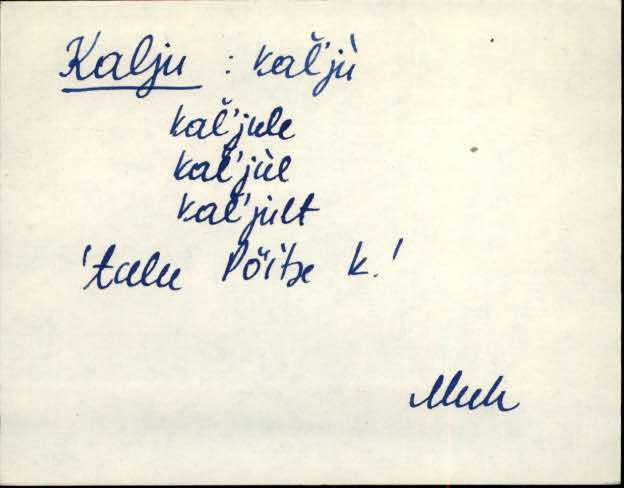 Kalju : kal̆'jù
kal̆'jule
kal̆'jùl
kal̆'jult
'talu Põitse k.'
Muh